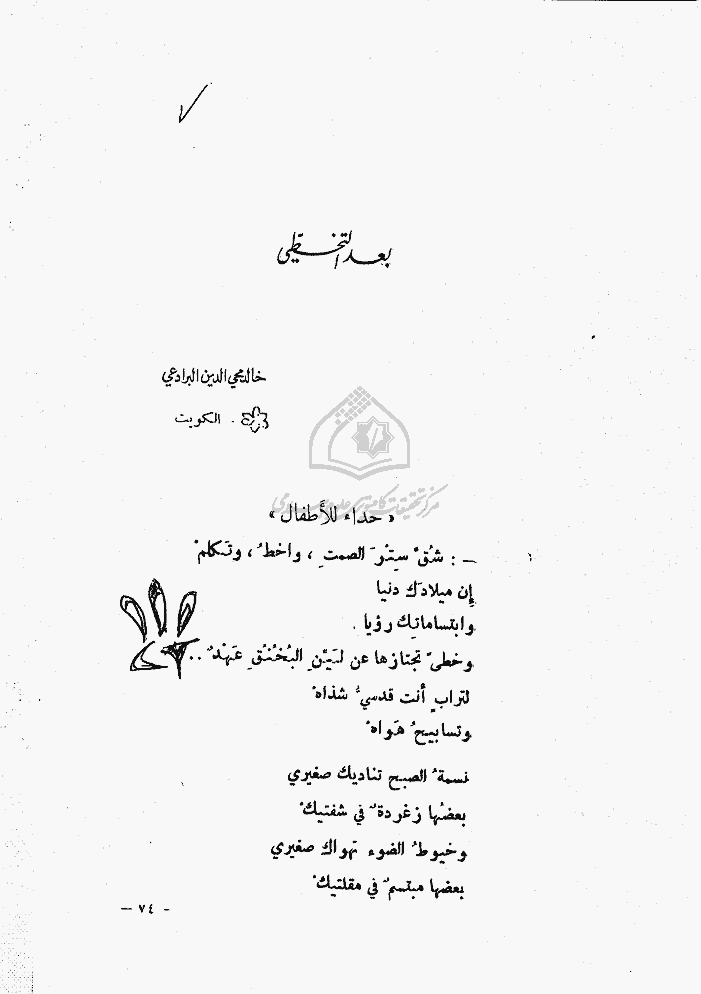 بعد التخطّي
خالد محي الدين البرادعي
الكويت .
« حداء للأطفال »
ـ : شُقّ سِتْرَ الصمتِ ، واخطُ ، وتكلمْ
إن ميلادَك دنيا
وابتساماتِك رؤيا .
وخطىً تجتازها عن لَيِّنِ البُخْنُقِ عَهْدُ ..
لترابٍ أنت قدسيُّ شذاهْ
وتسابيحُ هَواهْ
نسمةُ الصبح تناديك صغيري
بعضُها زغردةٌ في شفتيكْ
وخيوطُ الضوء تهواك صغيري
بعضها مبتسمٌ في مقلتيكْ
- ٧٤ -